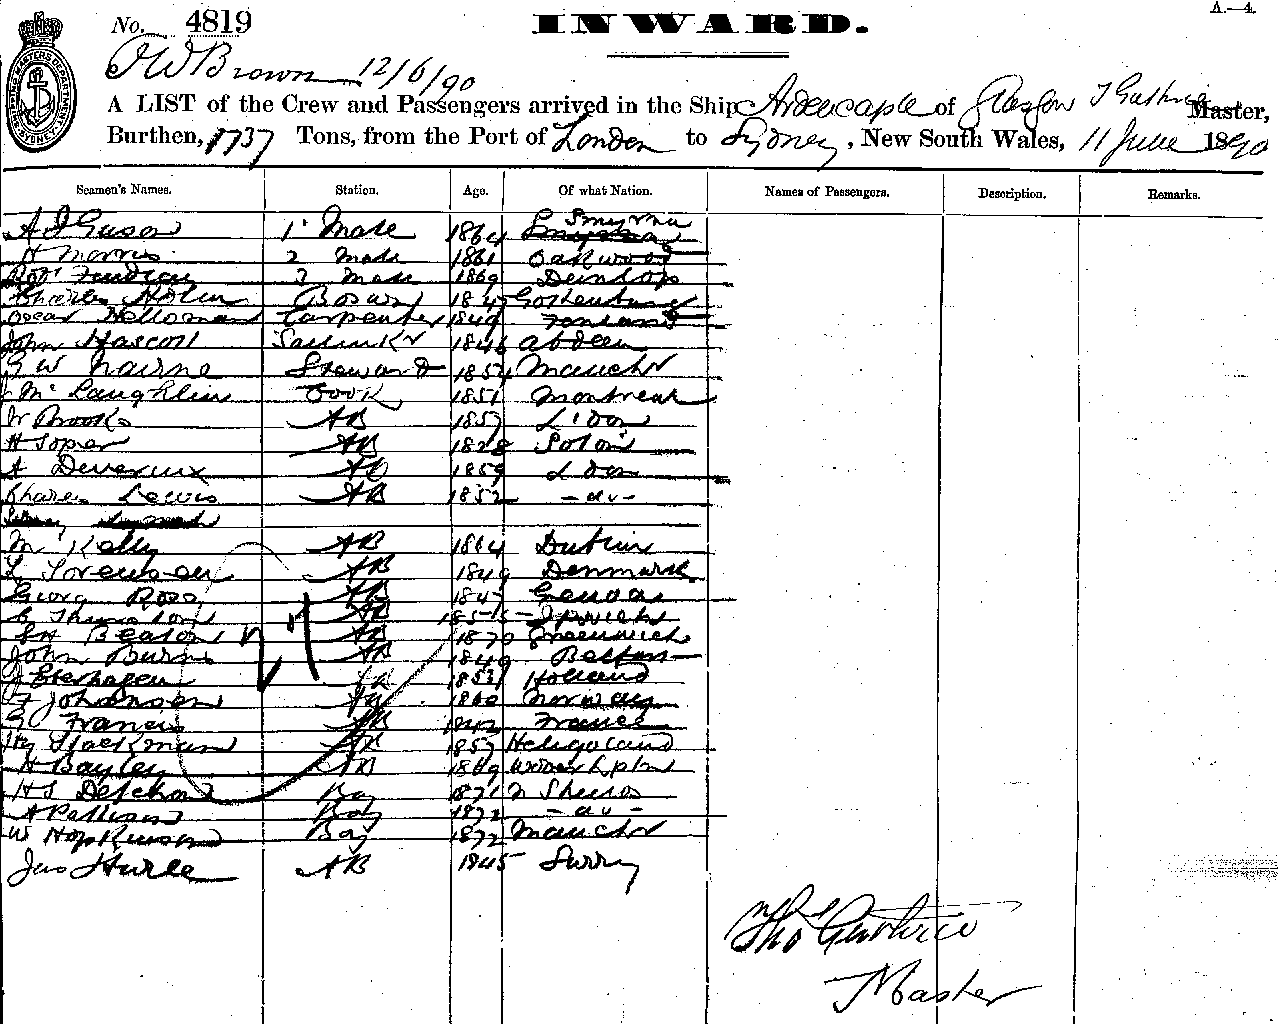 No. 4819 INWARD. A.—4.
SHIPPING MASTERS DEPARTMENT SYDNEY
Brown 12/6/90
A LIST of the Crew and Passengers arrived in the Ship Ardencaple of Glasgow T Guthrie Master,
Burthen, 1737 Tons, from the Port of London to Sydney, New South Wales, 11 June 1890
Seamen's Names. Station. Age. Of what Nation. Names of Passengers. Description. Remarks.
1 Mate 1864 Smyrna
H Morris 2 Mate 1861 Oakwood
3 Mate 1869
Charles Bosun 1847 Gothenburg
Oscar Carpenter 1849
John Hascott Sailmkr 1846
G W Nairne Steward 1854 Manchr
McLaughlin Cook 1851 Montreal
W Brooks AB 1857 L'don
H Soper AB 1828
A Devereux AB 1859 L'don
Charles Lewis AB 1852 – do –
M Kelly AB 1864 Dublin
L Sorensen AB 1849 Denmark
George Ross AB 1847 Genoa
C Thurston AB 1855 Ipswich
Beaton AB 1870 Greenwich
John Burns AB 1849 Belfast
AB 1853 Holland
F Johansen AB 1860 Norway
G Francis AB 1842 France
Hy Stackman AB 1857 Heligoland
H Bayley AB 1869 Wolverhpton
H S Boy 1871 N Shields
A Pattison Boy 1872 – do –
W Hopkinson Boy 1872 Manchr
Jas Hurle AB 1845 Surry
27
Thos Guthrie
Master